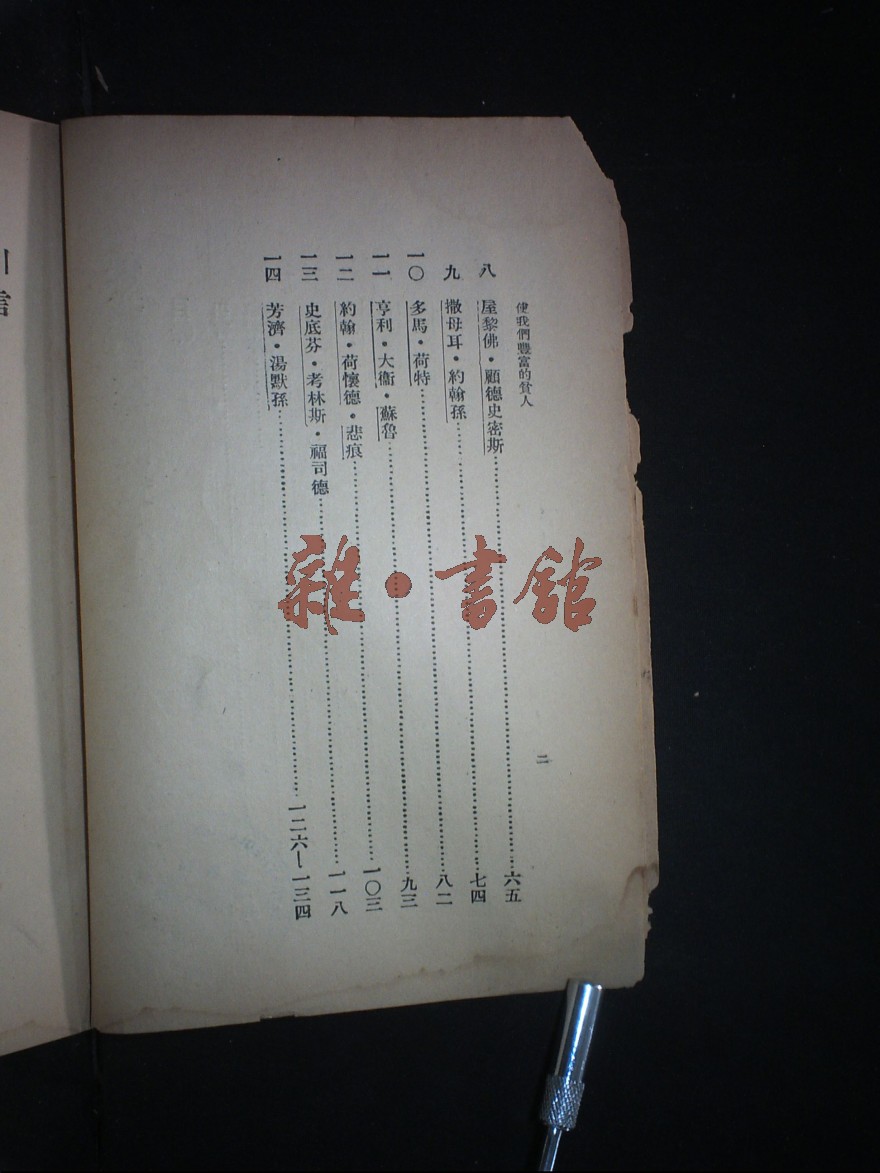 使我們豐富的貧人
二
八 屋黎佛・顧德史密斯……六五
九 撒母耳・約翰孫……七四
一〇 多馬・荷特……八二
一一 亨利・大衞・蘇魯……九三
一二 約翰・荷懷德・悲痕……一〇三
一三 史底芬・考林斯・福司德……一一八
一四 芳濟・湯默孫……一二六—一三四
引言
雜・書館